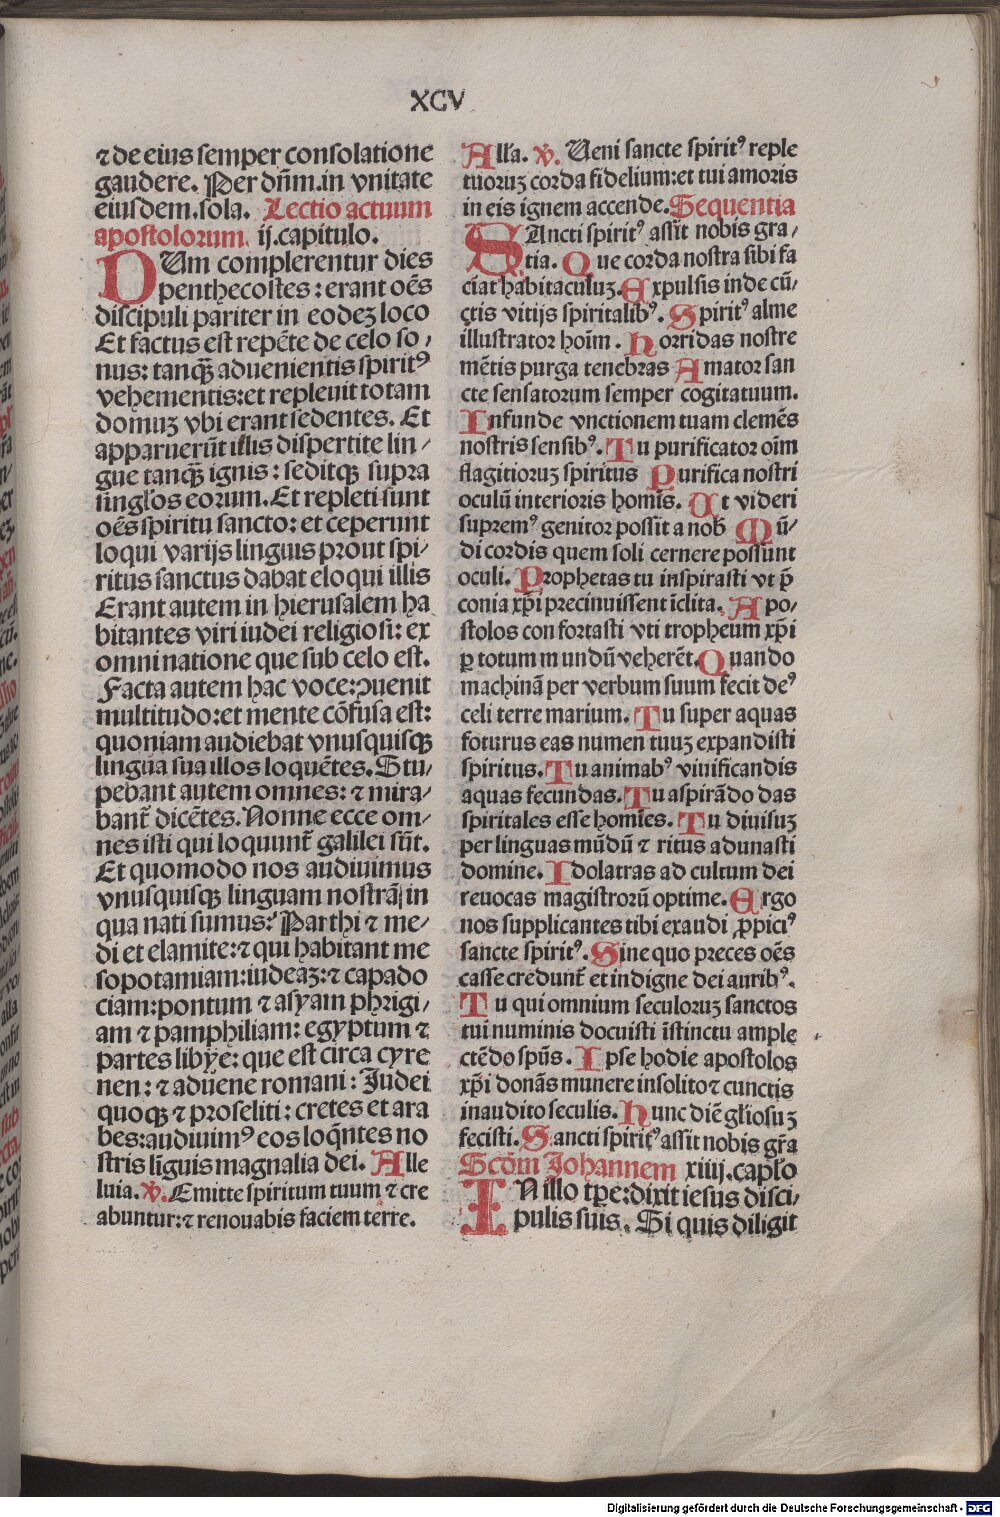 XCV
⁊ de eius semper consolatione
gaudere. Per dn̄m.in vnitate
eiusdem.sola. Lectio actuum
apostolorum. ij.capitulo.
DUm complerentur dies
penthecostes : erant oēs
discipuli pariter in eodeꝫ loco
Et factus est repēte de celo so/
nus: tanqꝫ̄ aduenientis spiritꝰ
vehementis:et repleuit totam
domuꝫ vbi erant sedentes. Et
apparuerūt illis dispertite lin/
gue tanqꝫ̄ ignis : seditqꝫ supra
singl̓os eorum. Et repleti sunt
oēs spiritu sancto: et ceperunt
loqui varijs linguis prout spi/
ritus sanctus dabat eloqui illis
Erant autem in hierusalem ha
bitantes viri iudei religiosi: ex
omni natione que sub celo est.
Facta autem hac voce:ꝯuenit
multitudo:et mente cōfusa est:
quoniam audiebat vnusquisqꝫ
lingua sua illos loquētes. Stu/
pebant autem omnes: ⁊ mira/
bant̄ dicētes. Nonne ecce om/
nes isti qui loquunt̄ galilei sūt.
Et quomodo nos audiuimus
vnusquisqꝫ linguam nostrā in
qua nati sumus: Parthi ⁊ me/
di et elamite:⁊ qui habitant me
sopotamiam:iudeaꝫ:⁊ capado
ciam:pontum ⁊ asyam phrigi/
am ⁊ pamphiliam: egyptum ⁊
partes libye: que est circa cyre
nen: ⁊ aduene romani : Iudei
quoqꝫ ⁊ proseliti : cretes et ara
bes:audiuimꝰ eos loq̄ntes no
stris līguis magnalia dei. Alle
luia. ℣. Emitte spiritum tuum ⁊ cre
abuntur:⁊ renouabis faciem terre.
All̓a. ℣. Ueni sancte spiritꝰ reple
tuoruꝫ corda fidelium:et tui amoris
in eis ignem accende. Sequentia
SAncti spiritꝰ assit nobis gra/
tia. Que corda nostra sibi fa
ciat habitaculuꝫ. Expulsis inde cū/
ctis vitijs spiritalibꝰ. Spiritꝰ alme
illustrator hoīm. Horridas nostre
mētis purga tenebras Amator san
cte sensatorum semper cogitatuum.
Infunde vnctionem tuam clemēs
nostris sensibꝰ. Tu purificator oīm
flagitioruꝫ spiritus Purifica nostri
oculū interioris homīs. Ut videri
supremꝰ genitor possit a nob̄ Mū/
di cordis quem soli cernere possunt
oculi. Prophetas tu inspirasti vt p̄
conia xp̄i precinuissent īclita. Apo/
stolos confortasti vti tropheum xp̄i
ꝑ totum mundū veherēt. Quando
machinā per verbum suum fecit deꝰ
celi terre marium. Tu super aquas
foturus eas numen tuuꝫ expandisti
spiritus. Tu animabꝰ viuificandis
aquas fecundas. Tu aspirādo das
spiritales esse homīes. Tu diuisuꝫ
per linguas mūdū ⁊ ritus adunasti
domine. Idolatras ad cultum dei
reuocas magistrorū optime. Ergo
nos supplicantes tibi exaudi ꝓpiciꝰ
sancte spiritꝰ. Sine quo preces oēs
casse credunt̄ et indigne dei auribꝰ.
Tu qui omnium seculoruꝫ sanctos
tui numinis docuisti īstinctu ample
ctēdo spūs. Ipse hodie apostolos
xp̄i donās munere insolito ⁊ cunctis
inaudito seculis. Hunc diē gl̓iosuꝫ
fecisti. Sancti spiritꝰ assit nobis gr̄a
Scd̄m Johannem xiiij.capl̓o
IN illo tꝑe:dixit iesus disci/
pulis suis. Si quis diligit
Digitalisierung gefördert durch die Deutsche Forschungsgemeinschaft - DFG